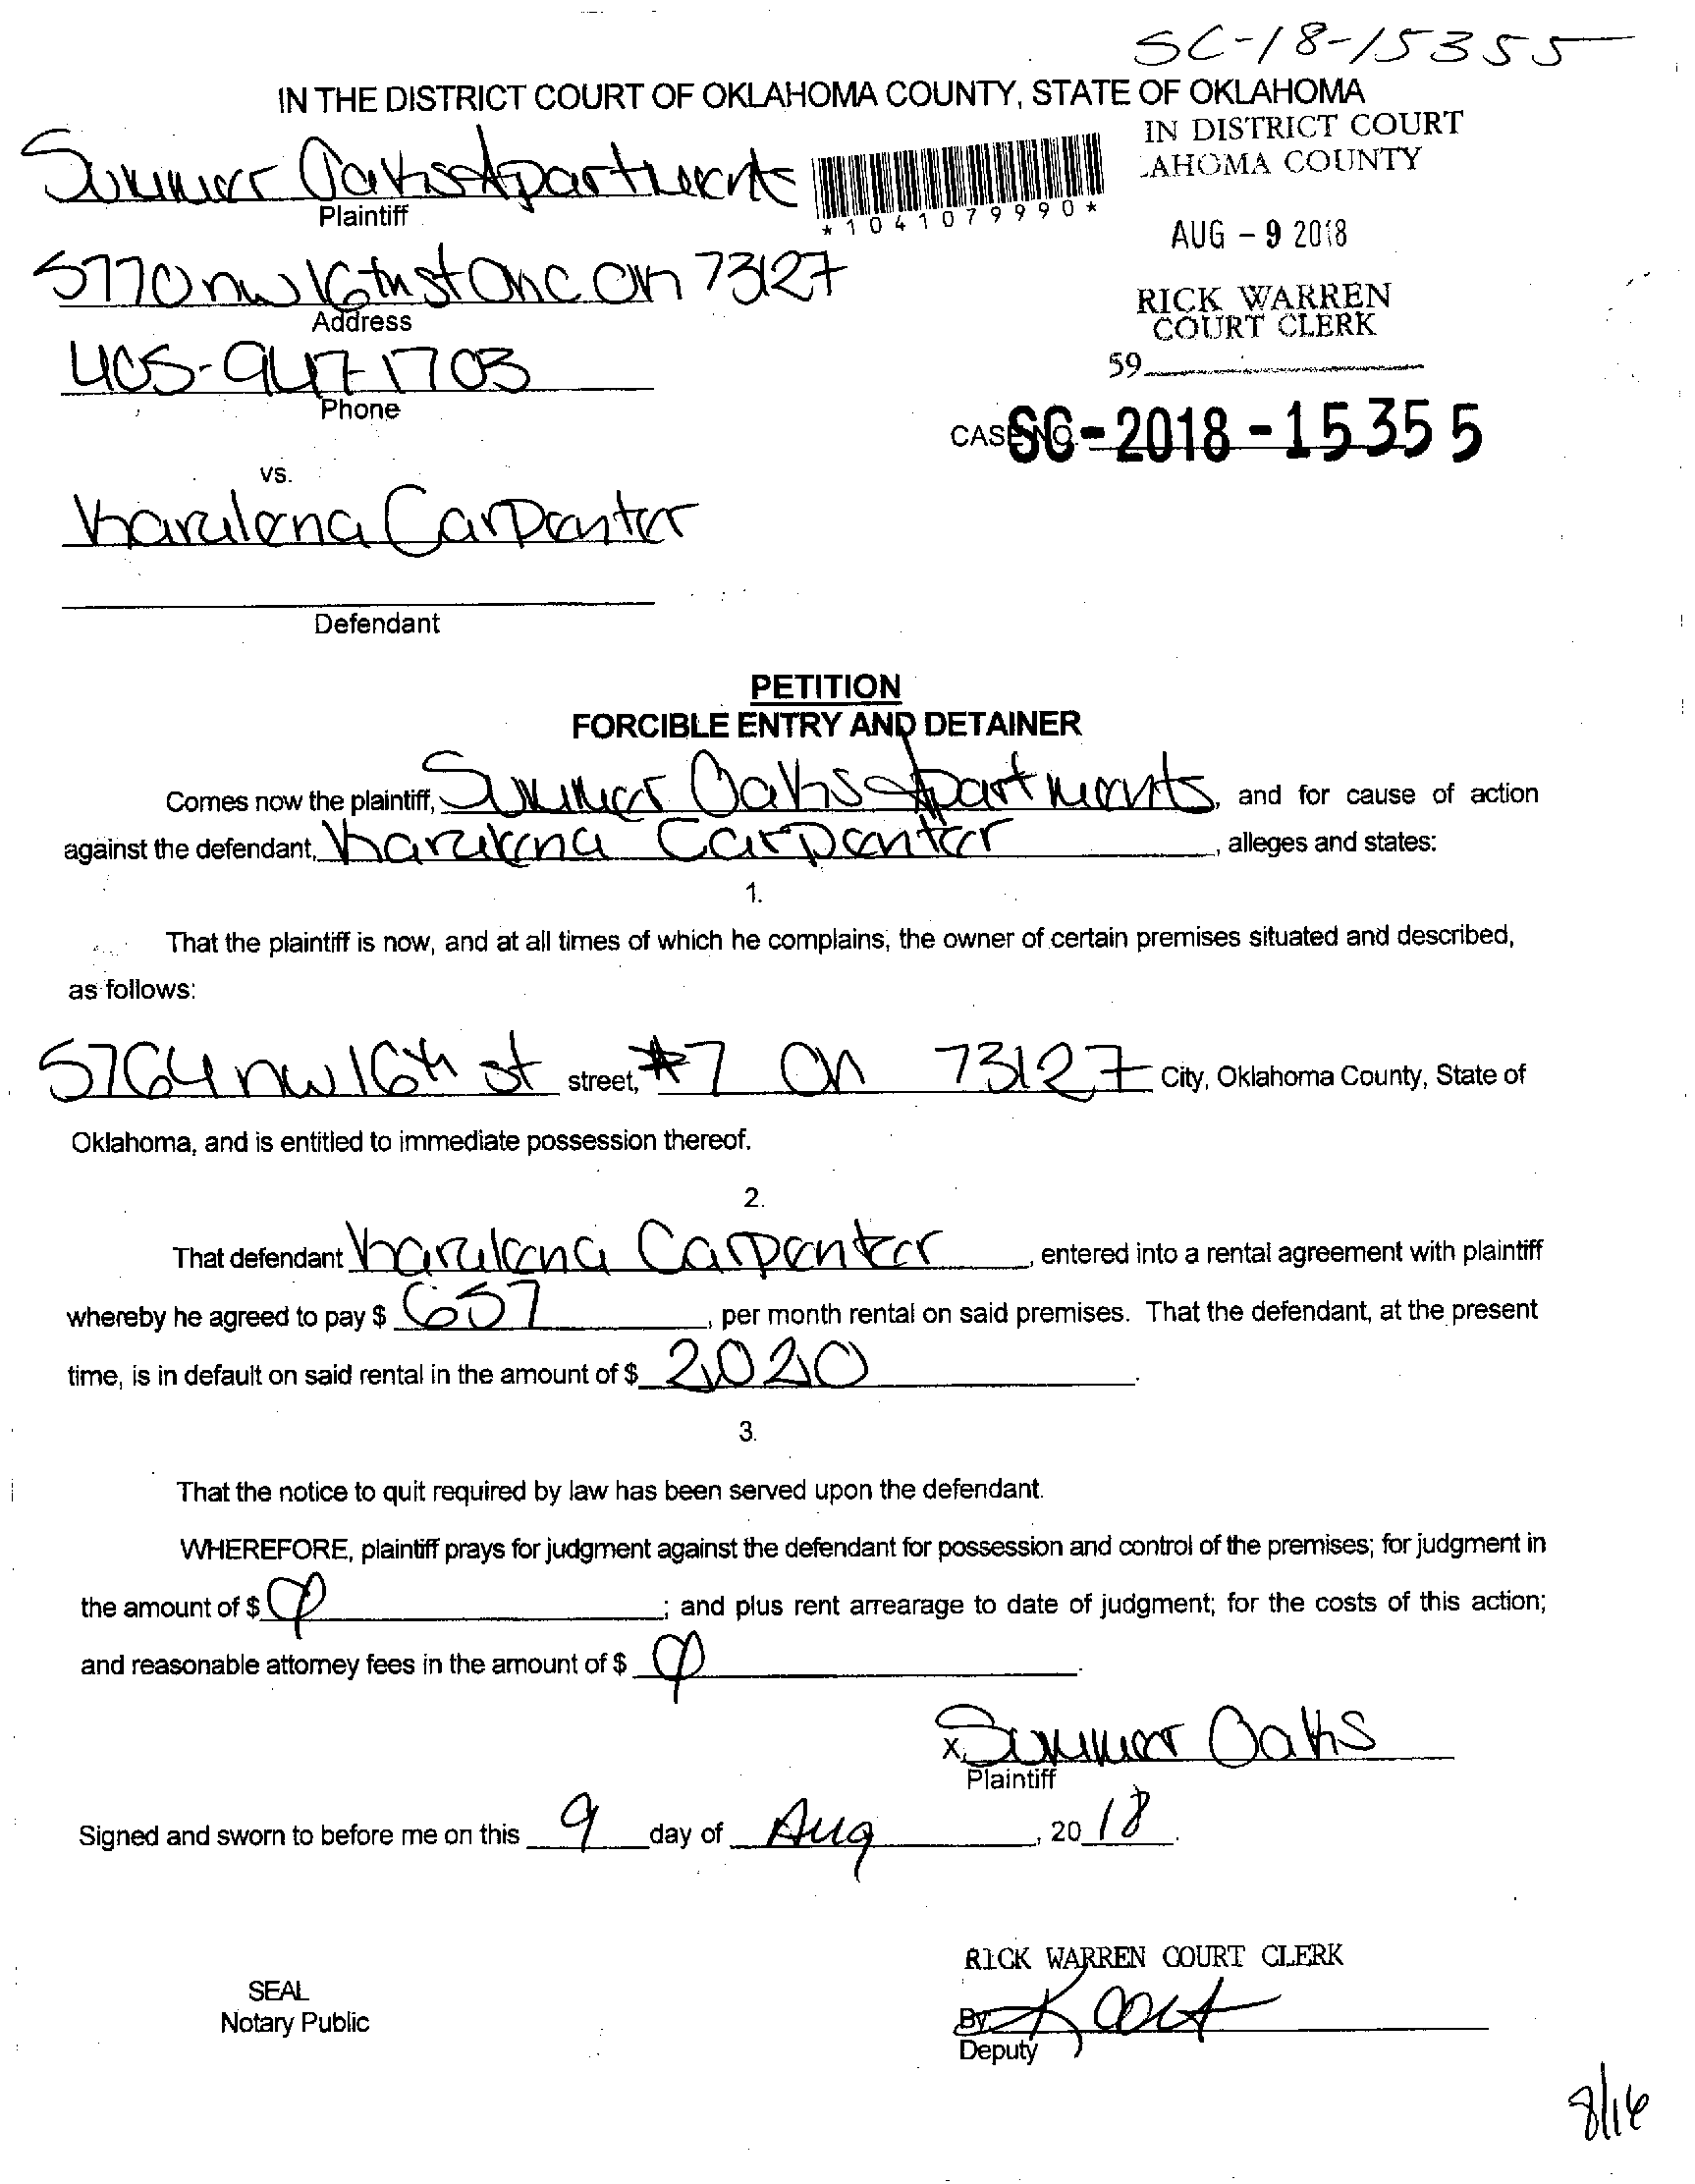 SC-18-15355
IN THE DISTRICT COURT OF OKLAHOMA COUNTY, STATE OF OKLAHOMA
IN DISTRICT COURT
AHOMA COUNTY
Summer Oaks Apartments
Plaintiff
*1041079990*
AUG - 9 2018
5770 nw 16th st OKC OK 73127
Address
RICK WARREN
COURT CLERK
59
405-947-1703
Phone
CASE NO. SC-2018-15355
vs.
Carpenter
Defendant
PETITION
FORCIBLE ENTRY AND DETAINER
Comes now the plaintiff, Summer Oaks Apartments, and for cause of action
against the defendant, Carpenter, alleges and states:
1.
That the plaintiff is now, and at all times of which he complains, the owner of certain premises situated and described,
as follows:
5764 nw 16th st street, #7 OK 73127 City, Oklahoma County, State of
Oklahoma, and is entitled to immediate possession thereof.
2.
That defendant Carpenter, entered into a rental agreement with plaintiff
whereby he agreed to pay $ 657, per month rental on said premises. That the defendant, at the present
time, is in default on said rental in the amount of $ 2020.
3.
That the notice to quit required by law has been served upon the defendant.
WHEREFORE, plaintiff prays for judgment against the defendant for possession and control of the premises; for judgment in
the amount of $ ; and plus rent arrearage to date of judgment; for the costs of this action;
and reasonable attorney fees in the amount of $ .
x Summer Oaks
Plaintiff
Signed and sworn to before me on this 9 day of Aug, 20 18.
RICK WARREN COURT CLERK
SEAL
Notary Public
By
Deputy
8/16